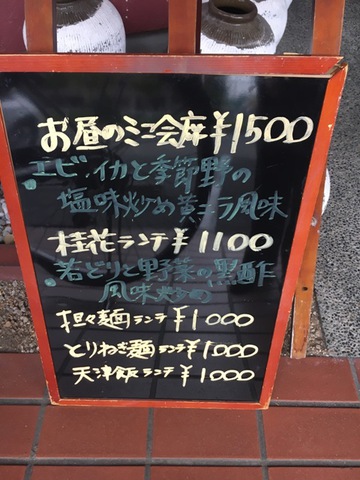 お昼のミニ会席¥1500
エビ・イカと季節野の
塩味炒め黄ニラ風味
桂花ランチ¥1100
若どりと野菜の黒酢
風味炒め
担々麺ランチ¥1000
とりねぎ麺ランチ¥1000
天津飯ランチ¥1000